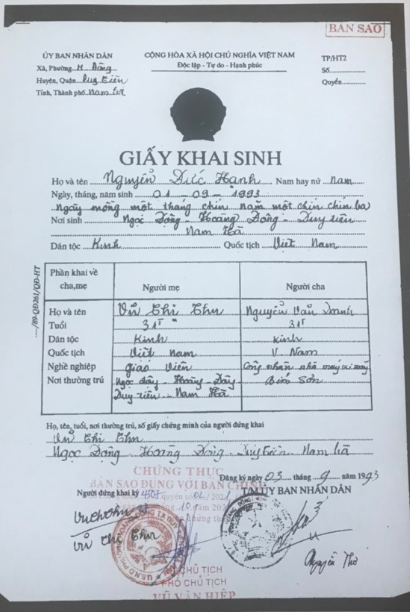 BẢN SAO
ỦY BAN NHÂN DÂN
Xã, Phường H Đông
Huyện, Quận Duy Tiên
Tỉnh, Thành phố Nam Hà
CỘNG HÒA XÃ HỘI CHỦ NGHĨA VIỆT NAM
Độc lập - Tự do - Hạnh phúc
TP/HT2
Số
Quyển
GIẤY KHAI SINH
Họ và tên Nguyễn Đức Hạnh Nam hay nữ nam
Ngày, tháng, năm sinh 01 - 09 - 1993
Ngày mồng một tháng chín năm một chín chín ba
Nơi sinh Ngọc Động - Hoàng Đông - Duy tiên
Nam Hà
Dân tộc Kinh Quốc tịch Việt Nam
Phần khai về cha,mẹ Người mẹ Người cha
Họ và tên Vũ Thị Thu Nguyễn Văn
Tuổi 31T 31T
Dân tộc Kinh Kinh
Quốc tịch Việt Nam V. Nam
Nghề nghiệp giáo viên Công nhân nhà máy xi măng
Nơi thường trú Ngọc động - Hoàng - Đông - Bỉm Sơn
Duy tiên - Nam Hà
Họ, tên, tuổi, nơi thường trú, số giấy chứng minh của người đứng khai
Vũ Thị Thu
Ngọc Động - Hoàng Đông - Duy tiên - Nam hà
CHỨNG THỰC
BẢN SAO ĐÚNG VỚI BẢN CHÍNH
Đăng ký ngày 03 tháng 9 năm 1993
Người đứng khai ký
TM ỦY BAN NHÂN DÂN
Vũ Thị Thu
CHỦ TỊCH
PHÓ CHỦ TỊCH
VŨ VĂN HIỆP